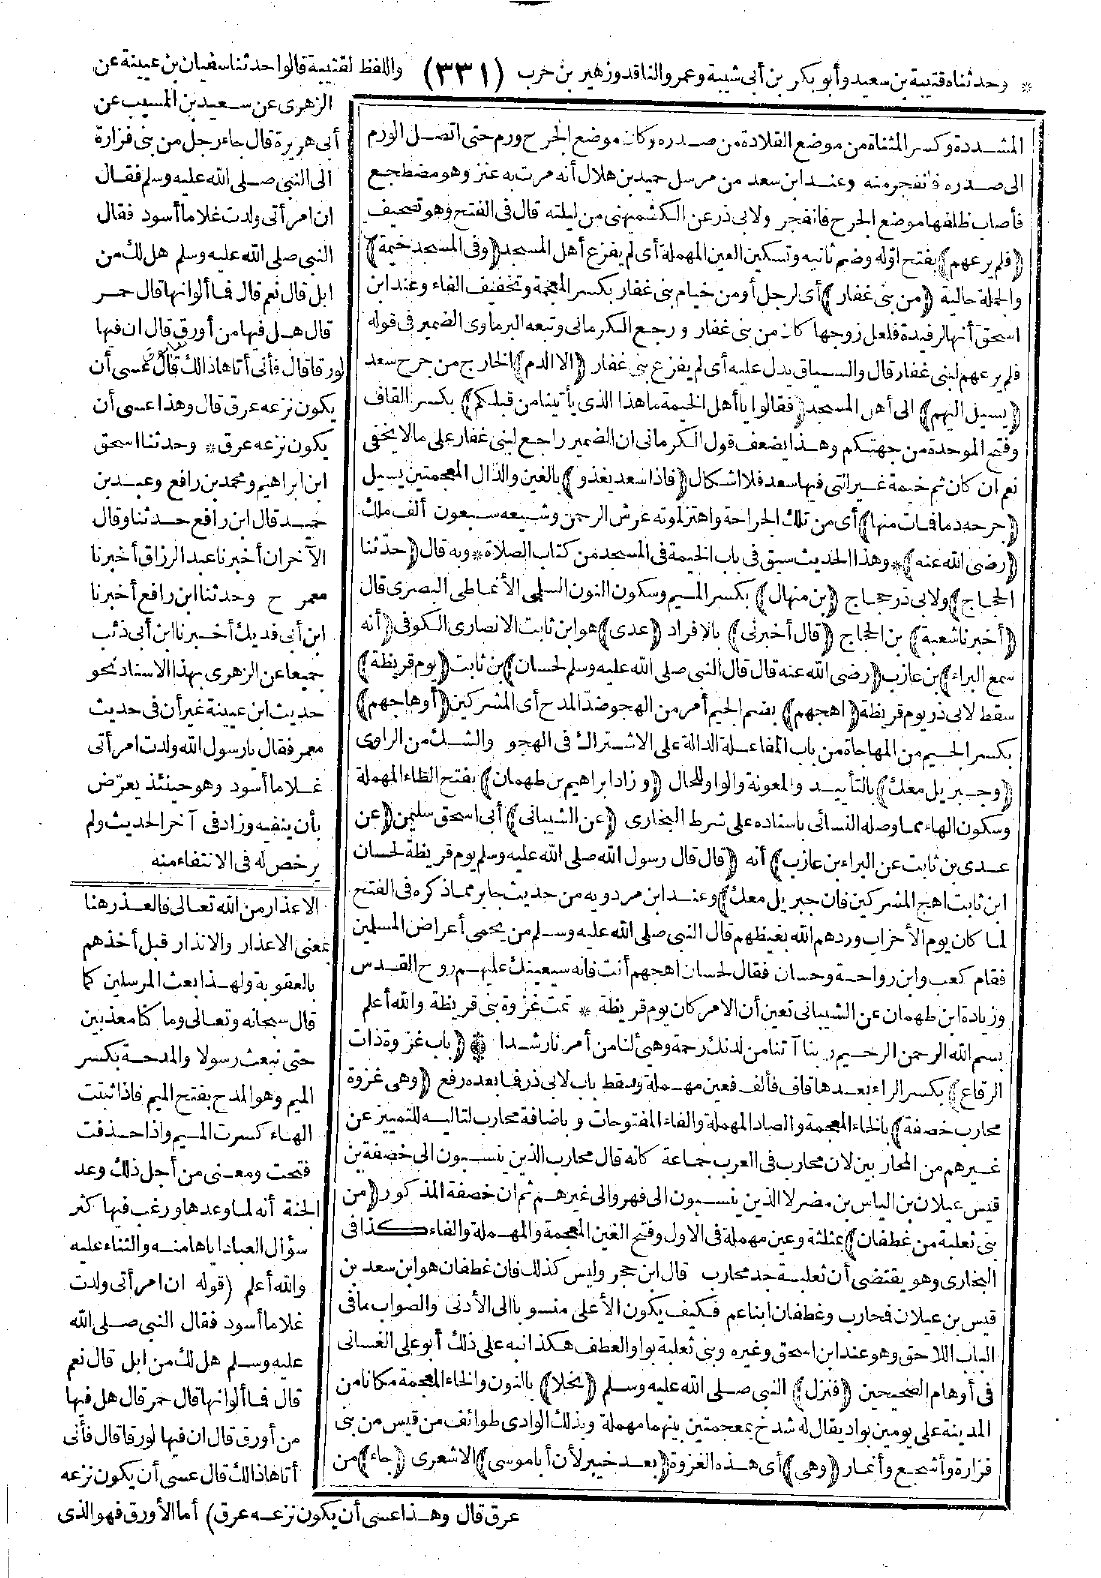 * وحدثناه قتيبة بن سعيد وأبو بكر بن أبى شيبة وعمرو الناقد وزهير بن حرب (٣٣١) واللفظ لقتيبة قالوا حدثنا سفيان بن عيينة عن
الزهرى عن سعيد بن المسيب عن
أبى هريرة قال جاء رجل من بنى فزارة
الى النبى صلى الله عليه وسلم فقال
ان امرأتى ولدت غلاما أسود فقال
النبى صلى الله عليه وسلم هل لك من
ابل قال نعم قال فما ألوانها قال حمر
قال هل فيها من أورق قال ان فيها
لورقا قال فأنى أتاها ذلك قال عسى أن
يكون نزعه عرق قال وهذا عسى أن
يكون نزعه عرق * وحدثنا اسحق
ابن ابراهيم ومحمد بن رافع وعبد بن
حميد قال ابن رافع حدثنا وقال
الآخران أخبرنا عبد الرزاق أخبرنا
معمر ح وحدثنا ابن رافع أخبرنا
ابن أبى فديك أخبرنا ابن أبى ذئب
جميعا عن الزهرى بهذا الاسناد نحو
حديث ابن عيينة غير أن فى حديث
معمر فقال يارسول الله ولدت امرأتى
غلاما أسود وهو حينئذ يعرّض
بأن ينفيه وزاد فى آخر الحديث ولم
يرخص له فى الانتفاء منه
الاعذار من الله تعالى فالعذر هنا
بمعنى الاعذار والانذار قبل أخذهم
بالعقوبة ولهذا بعث المرسلين كما
قال سبحانه وتعالى وما كنا معذبين
حتى نبعث رسولا والمدحة بكسر
الميم وهو المدح بفتح الميم فاذا ثبتت
الهاء كسرت الميم واذا حذفت
فتحت ومعنى من أجل ذلك وعد
الجنة أنه لما وعدها ورغب فيها كثر
سؤال العباد اياها منه والثناء عليه
والله أعلم (قوله ان امرأتى ولدت
غلاما أسود فقال النبى صلى الله
عليه وسلم هل لك من ابل قال نعم
قال فما ألوانها قال حمر قال هل فيها
من أورق قال ان فيها لورقا قال فأنى
أتاها ذلك قال عسى أن يكون نزعه
عرق قال وهذا عسى أن يكون نزعه عرق) أما الأورق فهو الذى
المشددة وكسر المثناة من موضع القلادة من صدره وكان موضع الجرح ورم حتى اتصل الورم
الى صدره فانفجر منه وعند ابن سعد من مرسل حميد بن هلال أنه مرت به عنز وهو مضطجع
فأصاب ظلفها موضع الجرح فانفجر ولابى ذر عن الكشميهنى من ليلته قال فى الفتح وهو تصحيف
﴿فلم يرعهم﴾ بفتح اوله وضم ثانيه وتسكين العين المهملة أى لم يفزع أهل المسجد ﴿وفى المسجد خيمة﴾
والجملة حالية ﴿من بنى غفار﴾ أى لرجل أو من خيام بنى غفار بكسر المعجمة وتخفيف الفاء وعند ابن
اسحق أنها لرفيدة فلعل زوجها كان من بنى غفار ورجع الكرمانى وتبعه البرماوى الضمير فى قوله
فلم يرعهم لبنى غفار قال والسياق يدل عليه أى لم يفزع بنى غفار ﴿الا الدم﴾ الخارج من جرح سعد
﴿يسيل اليهم﴾ الى أهل المسجد ﴿فقالوا يا أهل الخيمة ما هذا الذى يأتينا من قبلكم﴾ بكسر القاف
وفتح الموحدة من جهتكم وهذا يضعف قول الكرمانى ان الضمير راجع لبنى غفار على ما لا يخفى
نعم ان كان ثم خيمة غير التى فيها سعد فلا اشكال ﴿فاذا سعد يغذو﴾ بالغين والذال المعجمتين يسيل
﴿جرحه دما فمات منها﴾ أى من تلك الجراحة واهتز لموته عرش الرحمن وشيعه سبعون ألف ملك
﴿رضى الله عنه﴾ * وهذا الحديث سبق فى باب الخيمة فى المسجد من كتاب الصلاة * وبه قال ﴿حدّثنا
الحجاج﴾ ولابى ذر حجاج ﴿بن منهال﴾ بكسر الميم وسكون النون السلمى الأنماطى البصرى قال
﴿أخبرنا شعبة﴾ بن الحجاج ﴿قال أخبرنى﴾ بالافراد ﴿عدى﴾ هو ابن ثابت الانصارى الكوفى ﴿أنه
سمع البراء﴾ بن عازب ﴿رضى الله عنه قال قال النبى صلى الله عليه وسلم لحسان﴾ بن ثابت ﴿يوم قريظة﴾
سقط لابى ذر يوم قريظة ﴿اهجهم﴾ بضم الجيم أمر من الهجو ضد المدح أى المشركين ﴿أو هاجهم﴾
بكسر الجيم من المهاجاة من باب المفاعلة الدالة على الاشتراك فى الهجو والشك من الراوى
﴿وجبريل معك﴾ بالتأييد والمعونة والواو للحال ﴿وزاد ابراهيم بن طهمان﴾ بفتح الطاء المهملة
وسكون الهاء مما وصله النسائى باسناده على شرط البخارى ﴿عن الشيبانى﴾ أبى اسحق سليمن ﴿عن
عدى بن ثابت عن البراء بن عازب﴾ أنه ﴿قال قال رسول الله صلى الله عليه وسلم يوم قريظة لحسان
ابن ثابت اهج المشركين فان جبريل معك﴾ وعند ابن مردويه من حديث جابر مما ذكره فى الفتح
لما كان يوم الأحزاب وردهم الله بغيظهم قال النبى صلى الله عليه وسلم من يحمى أعراض المسلمين
فقام كعب وابن رواحة وحسان فقال لحسان اهجهم أنت فانه سيعينك عليهم روح القدس
وزيادة ابن طهمان عن الشيبانى تعين أن الامر كان يوم قريظة * تمت غزوة بنى قريظة والله أعلم
بسم الله الرحمن الرحيم ربنا آتنا من لدنك رحمة وهيئ لنا من أمرنا رشدا ۞ ﴿باب غزوة ذات
الرقاع﴾ بكسر الراء بعدها قاف فألف فعين مهملة وسقط باب لابى ذر فما بعده رفع ﴿وهى غزوة
محارب خصفة﴾ بالخاء المعجمة والصاد المهملة والفاء المفتوحات وباضافة محارب لتاليه للتمييز عن
غيرهم من المحاربين لان محارب فى العرب جماعة كانه قال محارب الذين ينسبون الى خصفة بن
قيس عيلان بن الياس بن مضر لا الذين ينسبون الى فهر والى غيرهم ثم ان خصفة المذكور ﴿من
بنى ثعلبة من غطفان﴾ بمثلثة وعين مهملة فى الاول وفتح الغين المعجمة والمهملة والفاء كذا فى
البخارى وهو يقتضى أن ثعلبة جد محارب قال ابن حجر وليس كذلك فان غطفان هو ابن سعد بن
قيس بن عيلان فمحارب وغطفان ابنا عم فكيف يكون الأعلى منسوبا الى الأدنى والصواب ما فى
الباب اللاحق وهو عند ابن اسحق وغيره وبنى ثعلبة بواو العطف هكذا نبه على ذلك أبو على الغسانى
فى أوهام الصحيحين ﴿فنزل﴾ النبى صلى الله عليه وسلم ﴿نخلا﴾ بالنون والخاء المعجمة مكانا من
المدينة على يومين بواد يقال له شدخ بمعجمتين بينهما مهملة وبذلك الوادى طوائف من قيس من بنى
فزارة وأشجع وأنمار ﴿وهى﴾ أى هذه الغزوة ﴿بعد خيبر لأن أبا موسى﴾ الاشعرى ﴿جاء﴾ من